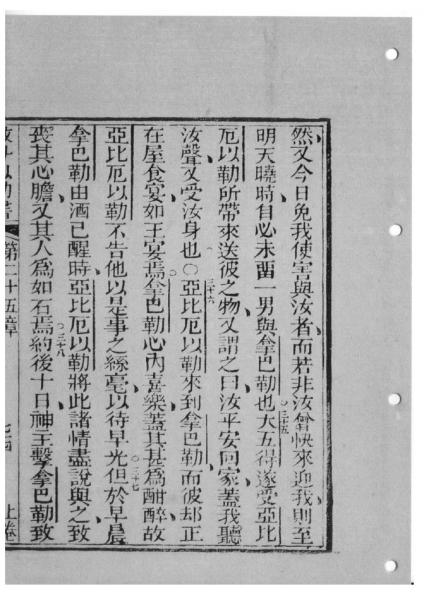 然又今日免我使害與汝者而若非汝曾快來迎我則至
明天曉時自必未畱一男與拿巴勒也。三十五大五得遂受亞比
厄以勒所帶來送彼之物又謂之曰汝平安囘家蓋我聽
汝聲又受汝身也○三十六亞比厄以勒來到拿巴勒而彼却正
在屋食宴如王宴焉拿巴勒心內喜樂蓋其甚爲酣醉故
亞比厄以勒不告他以是事之絲毫以待早光○三十七但於早晨
拿巴勒由酒已醒時亞比厄以勒將此諸情盡說與之致
喪其心膽又其人爲如石焉○三十八約後十日神王擊拿巴勒致
第二十五章 上卷